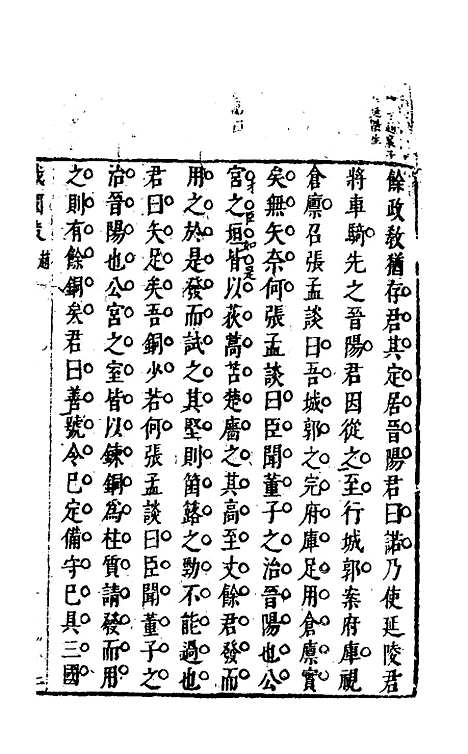 餘政教猶存君其定居晉陽君曰諾乃使延陵君
將車騎先之晉陽君因從之至行城郭案府庫視
倉廩召張孟談曰吾城郭之完府庫足用倉廩實
矣無矢奈何張孟談曰臣聞董子之治晉陽也公
宮之垣皆以荻蒿苫楚廧之其高至丈餘君發而
用之於是發而試之其堅則箘簬之勁不能過也
君曰矢足矣吾銅少若何張孟談曰臣聞董子之
治晉陽也公宮之室皆以鍊銅為柱質請發而用
之則有餘銅矣君曰善號令已定備守已具三國
戰國策 趙